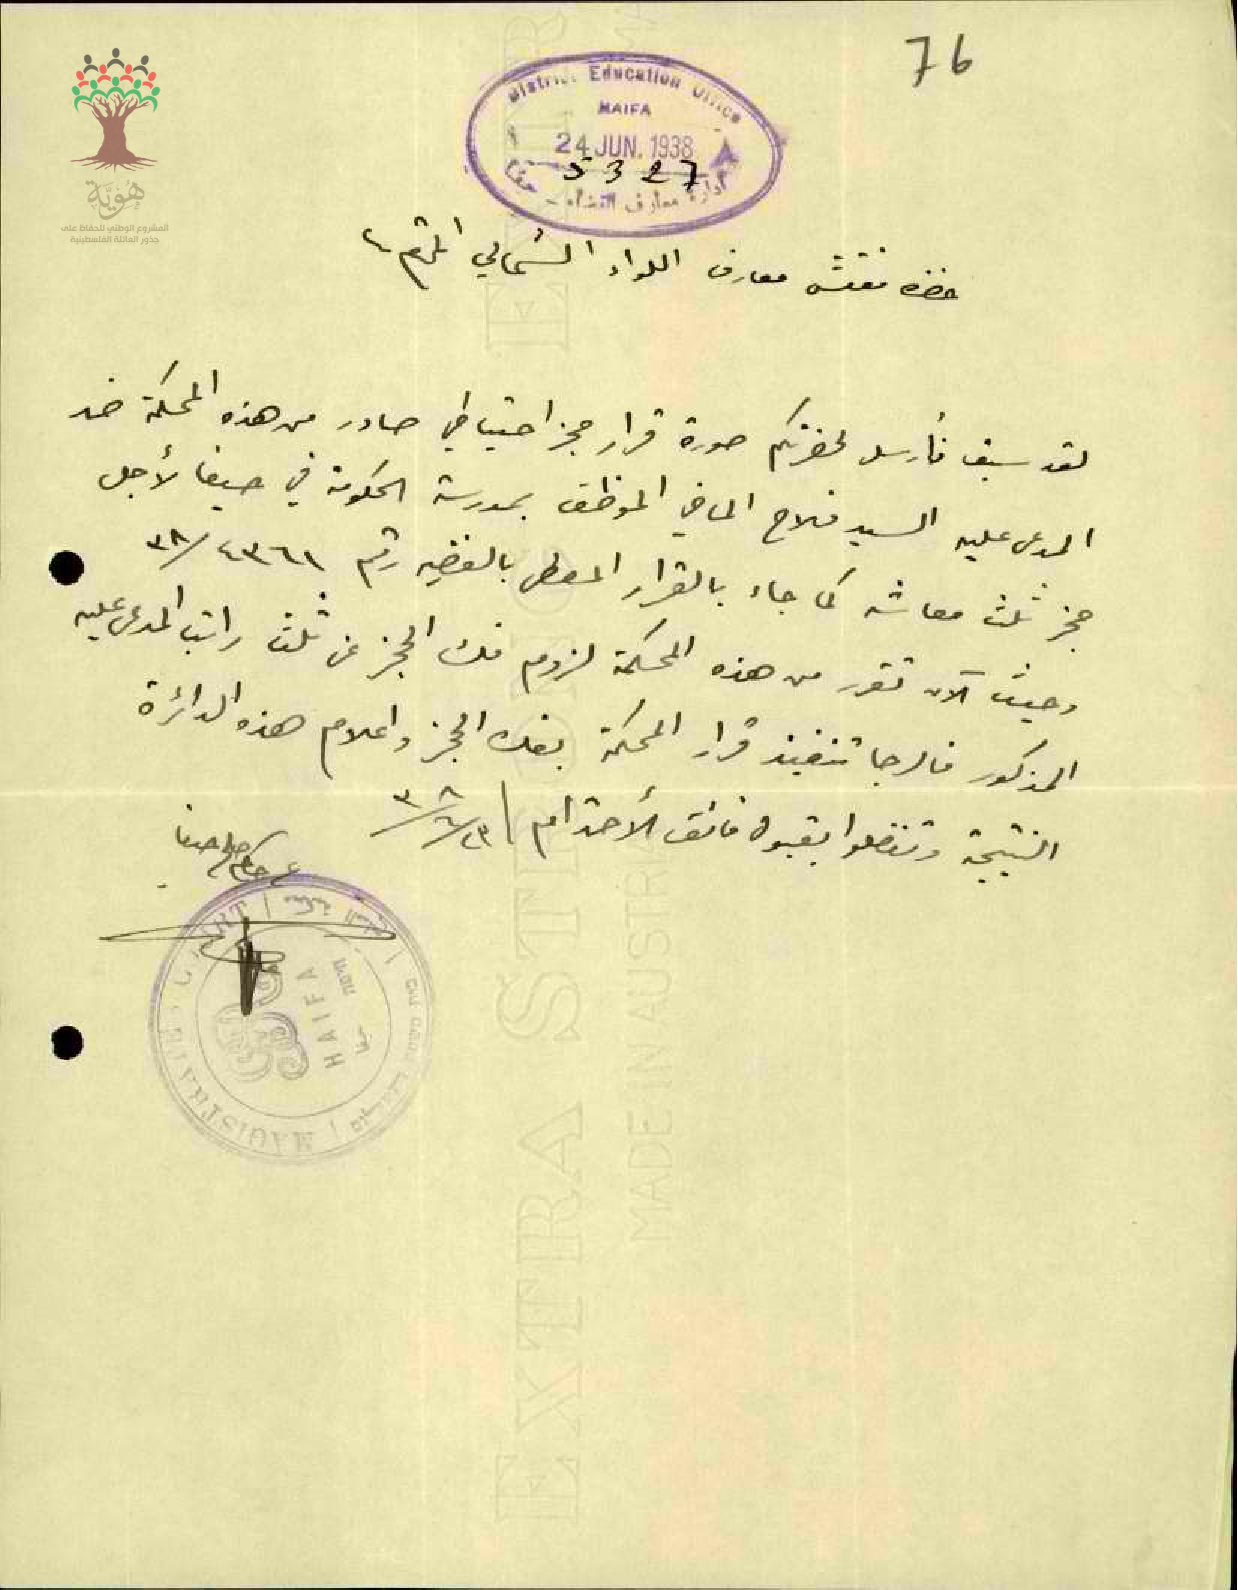 76
District Education Office
HAIFA
24 JUN. 1938
5327
ادارة معارف القضاء - حيفا
هُوِيَّة
المشروع الوطني للحفاظ على
جذور العائلة الفلسطينية
حضرة مفتش معارف اللواء الشمالي المحترم
لقد سبق فأرسل لحضرتكم صورة قرار حجز احتياطي صادر من هذه المحكمة ضد
المدعى عليه السيد فلاح الماضي الموظف بمدرسة الحكومة في حيفا لأجل
حجز ثلث معاشه كما جاء بالقرار المعطى بالقضيه رقم ٤٣٦١/٣٨
وحيث الآن تقرر من هذه المحكمة لزوم فك الحجز عن ثلث راتب المدعى عليه
المذكور فالرجا تنفيذ قرار المحكمة بفك الحجز واعلام هذه الدائرة
النتيجة وتفضلوا بقبول فائق الأحترام ٢٣/٦/٣٨
حاكم صلح حيفا
MAGISTRATE'S COURT
HAIFA
חיפה
حيفا
EXTRA STRONG
MADE IN AUSTRIA